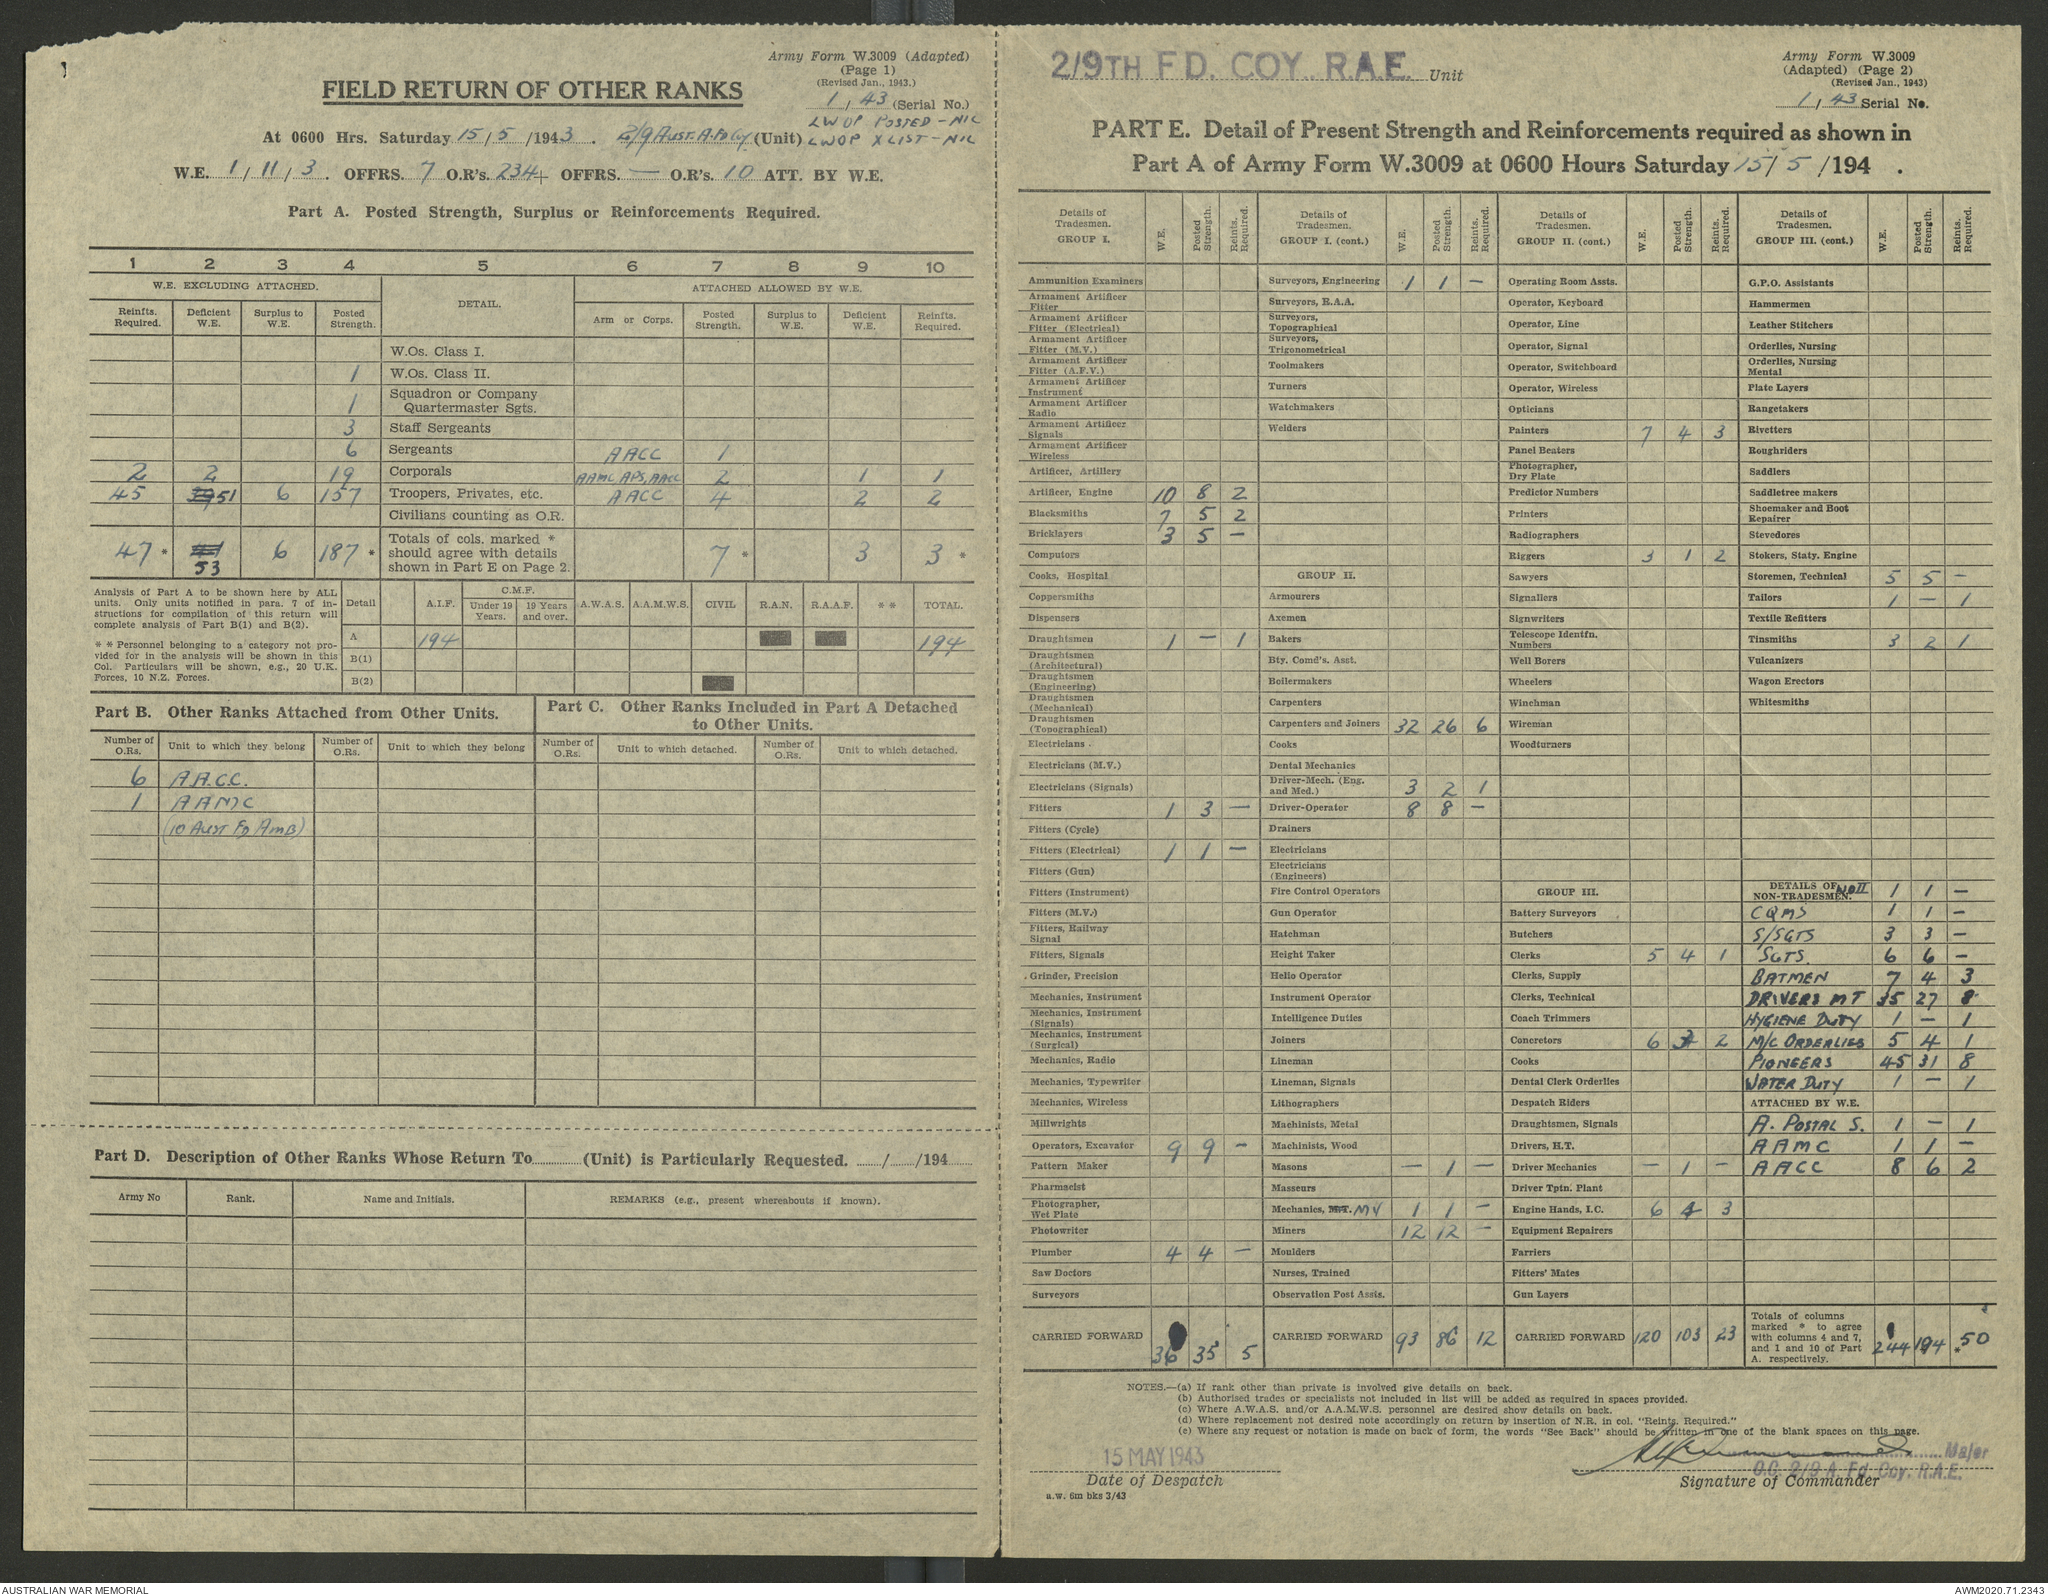 Army Form W.3009 (Adapted)
(Page 1)
(Revised Jan., 1943.)
FIELD RETURN OF OTHER RANKS
1 / 43 (Serial No.)
LWOP POSTED - NIL
At 0600 Hrs. Saturday 15/5/1943. 2/9 AUST. A. FD Coy (Unit) LWOP X LIST - NIL
W.E. 1/11/3. OFFRS. 7 O.R's. 234+ OFFRS. — O.R's. 10 ATT. BY W.E.
Part A. Posted Strength, Surplus or Reinforcements Required.
1 2 3 4 5 6 7 8 9 10
W.E. EXCLUDING ATTACHED. DETAIL. ATTACHED ALLOWED BY W.E.
Reinfts. Required. Deficient W.E. Surplus to W.E. Posted Strength. Arm or Corps. Posted Strength. Surplus to W.E. Deficient W.E. Reinfts. Required.
W.Os. Class I.
1 W.Os. Class II.
1 Squadron or Company Quartermaster Sgts.
3 Staff Sergeants
6 Sergeants AACC 1
2 2 19 Corporals AAMC, APS, AACC 2 1 1
45 39 51 6 157 Troopers, Privates, etc. AACC 4 2 2
Civilians counting as O.R.
47 * 41 53 6 187 * Totals of cols. marked * should agree with details shown in Part E on Page 2. 7 * 3 3 *
Analysis of Part A to be shown here by ALL units. Only units notified in para. 7 of instructions for compilation of this return will complete analysis of Part B(1) and B(2).
** Personnel belonging to a category not provided for in the analysis will be shown in this Col. Particulars will be shown, e.g., 20 U.K. Forces, 10 N.Z. Forces.
Detail A.I.F. C.M.F. Under 19 Years. 19 Years and over. A.W.A.S. A.A.M.W.S. CIVIL R.A.N. R.A.A.F. ** TOTAL.
A 194 194
B(1)
B(2)
Part B. Other Ranks Attached from Other Units.
Part C. Other Ranks Included in Part A Detached to Other Units.
Number of O.Rs. Unit to which they belong Number of O.Rs. Unit to which they belong Number of O.Rs. Unit to which detached. Number of O.Rs. Unit to which detached.
6 A.A.C.C.
1 AAMC
(10 AUST FD AMB)
Part D. Description of Other Ranks Whose Return To............(Unit) is Particularly Requested. ....../....../194......
Army No Rank. Name and Initials. REMARKS (e.g., present whereabouts if known).
2/9TH FD. COY. R.A.E. Unit
Army Form W.3009
(Adapted) (Page 2)
(Revised Jan., 1943)
1 / 43 Serial No.
PART E. Detail of Present Strength and Reinforcements required as shown in
Part A of Army Form W.3009 at 0600 Hours Saturday 15/5/194 .
Details of Tradesmen. GROUP I. W.E. Posted Strength. Reints. Required.
Ammunition Examiners
Armament Artificer Fitter
Armament Artificer Fitter (Electrical)
Armament Artificer Fitter (M.V.)
Armament Artificer Fitter (A.F.V.)
Armament Artificer Instrument
Armament Artificer Radio
Armament Artificer Signals
Armament Artificer Wireless
Artificer, Artillery
Artificer, Engine 10 8 2
Blacksmiths 7 5 2
Bricklayers 3 5 —
Computors
Cooks, Hospital
Coppersmiths
Dispensers
Draughtsmen 1 — 1
Draughtsmen (Architectural)
Draughtsmen (Engineering)
Draughtsmen (Mechanical)
Draughtsmen (Topographical)
Electricians
Electricians (M.V.)
Electricians (Signals)
Fitters 1 3 —
Fitters (Cycle)
Fitters (Electrical) 1 1 —
Fitters (Gun)
Fitters (Instrument)
Fitters (M.V.)
Fitters, Railway Signal
Fitters, Signals
Grinder, Precision
Mechanics, Instrument
Mechanics, Instrument (Signals)
Mechanics, Instrument (Surgical)
Mechanics, Radio
Mechanics, Typewriter
Mechanics, Wireless
Millwrights
Operators, Excavator 9 9 -
Pattern Maker
Pharmacist
Photographer, Wet Plate
Photowriter
Plumber 4 4 —
Saw Doctors
Surveyors
CARRIED FORWARD 36 35 5
Details of Tradesmen. GROUP I. (cont.) W.E. Posted Strength. Reints. Required.
Surveyors, Engineering 1 1 —
Surveyors, R.A.A.
Surveyors, Topographical
Surveyors, Trigonometrical
Toolmakers
Turners
Watchmakers
Welders
GROUP II.
Armourers
Axemen
Bakers
Bty. Comd's. Asst.
Boilermakers
Carpenters
Carpenters and Joiners 32 26 6
Cooks
Dental Mechanics
Driver-Mech. (Eng. and Med.) 3 2 1
Driver-Operator 8 8 —
Drainers
Electricians
Electricians (Engineers)
Fire Control Operators
Gun Operator
Hatchman
Height Taker
Helio Operator
Instrument Operator
Intelligence Duties
Joiners
Lineman
Lineman, Signals
Lithographers
Machinists, Metal
Machinists, Wood
Masons — 1 —
Masseurs
Mechanics, M.T. MV 1 1 —
Miners 12 12 —
Moulders
Nurses, Trained
Observation Post Assts.
CARRIED FORWARD 93 86 12
Details of Tradesmen. GROUP II. (cont.) W.E. Posted Strength. Reints. Required.
Operating Room Assts.
Operator, Keyboard
Operator, Line
Operator, Signal
Operator, Switchboard
Operator, Wireless
Opticians
Painters 7 4 3
Panel Beaters
Photographer, Dry Plate
Predictor Numbers
Printers
Radiographers
Riggers 3 1 2
Sawyers
Signallers
Signwriters
Telescope Identfn. Numbers
Well Borers
Wheelers
Winchman
Wireman
Woodturners
GROUP III.
Battery Surveyors
Butchers
Clerks 5 4 1
Clerks, Supply
Clerks, Technical
Coach Trimmers
Concretors 6 2
Cooks
Dental Clerk Orderlies
Despatch Riders
Draughtsmen, Signals
Drivers, H.T.
Driver Mechanics — 1 —
Driver Tptn. Plant
Engine Hands, I.C. 6 4 3
Equipment Repairers
Farriers
Fitters' Mates
Gun Layers
CARRIED FORWARD 120 103 23
Details of Tradesmen. GROUP III. (cont.) W.E. Posted Strength. Reints. Required.
G.P.O. Assistants
Hammermen
Leather Stitchers
Orderlies, Nursing
Orderlies, Nursing Mental
Plate Layers
Rangetakers
Rivetters
Roughriders
Saddlers
Saddletree makers
Shoemaker and Boot Repairer
Stevedores
Stokers, Staty. Engine
Storemen, Technical 5 5 —
Tailors 1 — 1
Textile Refitters
Tinsmiths 3 2 1
Vulcanizers
Wagon Erectors
Whitesmiths
DETAILS OF NON-TRADESMEN. WO II 1 1 —
CQMS 1 1 —
S/SGTS 3 3 —
SGTS. 6 6 —
BATMEN 7 4 3
DRIVERS MT 35 27 8
HYGIENE DUTY 1 — 1
M/C ORDERLIES 5 4 1
PIONEERS 45 31 8
WATER DUTY 1 — 1
ATTACHED BY W.E.
A. POSTAL S. 1 — 1
AAMC 1 1 —
AACC 8 6 2
Totals of columns marked * to agree with columns 4 and 7, and 1 and 10 of Part A. respectively. 244 194 * 50
NOTES.—(a) If rank other than private is involved give details on back.
(b) Authorised trades or specialists not included in list will be added as required in spaces provided.
(c) Where A.W.A.S. and/or A.A.M.W.S. personnel are desired show details on back.
(d) Where replacement not desired note accordingly on return by insertion of N.R. in col. "Reints. Required."
(e) Where any request or notation is made on back of form, the words "See Back" should be written in one of the blank spaces on this page.
15 MAY 1943
Date of Despatch
a.w. 6m bks 3/43
Major
O.C. 2/9 A. Fd. Coy. R.A.E.
Signature of Commander
AUSTRALIAN WAR MEMORIAL
AWM2020.71.2343